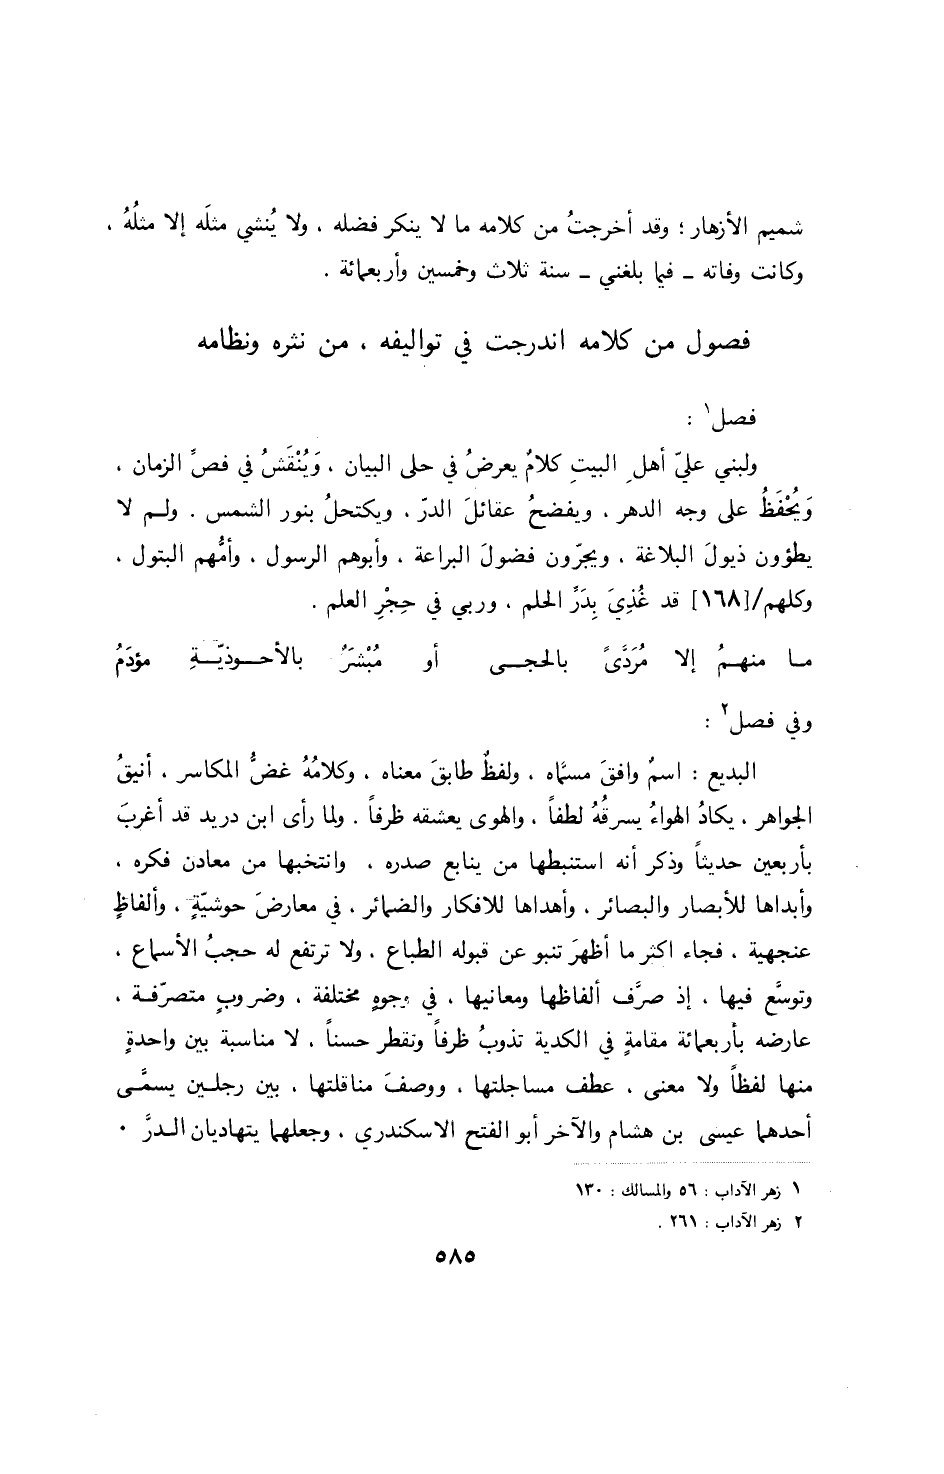 شميم الأزهار ؛ وقد أخرجتُ من كلامه ما لا ينكر فضله ، ولا يُنشي مثلَه إلا مثلُهُ ،
وكانت وفاته – فيما بلغني – سنة ثلاث وخمسين وأربعمائة .
فصول من كلامه اندرجت في تواليفه ، من نثره ونظامه
فصل١ :
ولبني عليّ أهلِ البيتِ كلامٌ يعرضُ في حلى البيان ، وَيُنْقَشُ في فصِّ الزمان ،
وَيُحْفَظُ على وجه الدهر ، ويفضحُ عقائلَ الدرّ ، ويكتحلُ بنور الشمس . ولم لا
يطؤون ذيولَ البلاغة ، ويجرّون فضولَ البراعة ، وأبوهم الرسول ، وأمُّهم البتول ،
وكلهم/[١٦٨] قد غُذِيَ بِدَرِّ الحلم ، وربي في حِجْرِ العلم .
ما منهمُ إلا مُرَدًّى بالحجى أو مُبْشَرٌ بالأحوذيّةِ مؤدَمُ
وفي فصل٢ :
البديع : اسمٌ وافقَ مسمَّاه ، ولفظٌ طابقَ معناه ، وكلامُهُ غضُّ المكاسر ، أنيقُ
الجواهر ، يكادُ الهواءُ يسرقُهُ لطفاً ، والهوى يعشقه ظرفاً . ولما رأى ابن دريد قد أغربَ
بأربعين حديثاً وذكر أنه استنبطها من ينابع صدره ، وانتخبها من معادن فكره ،
وأبداها للأبصار والبصائر ، وأهداها للافكار والضمائر ، في معارضَ حوشيّةٍ ، وألفاظٍ
عنجهية ، فجاء اكثر ما أظهرَ تنبو عن قبوله الطباع ، ولا ترتفع له حجبُ الأسماع ،
وتوسَّع فيها ، إذ صرَّف ألفاظها ومعانيها ، في وجوهٍ مختلفة ، وضروبٍ متصرّفة ،
عارضه بأربعمائة مقامةٍ في الكدية تذوبُ ظرفاً وتقطر حسناً ، لا مناسبة بين واحدةٍ
منها لفظاً ولا معنى ، عطف مساجلتها ، ووصفَ مناقلتها ، بين رجلين يسمَّى
أحدهما عيسى بن هشام والآخر أبو الفتح الاسكندري ، وجعلهما يتهاديان الدرَّ ،
١ زهر الآداب : ٥٦ والمسالك : ١٣٠
٢ زهر الآداب : ٢٦١ .
٥٨٥